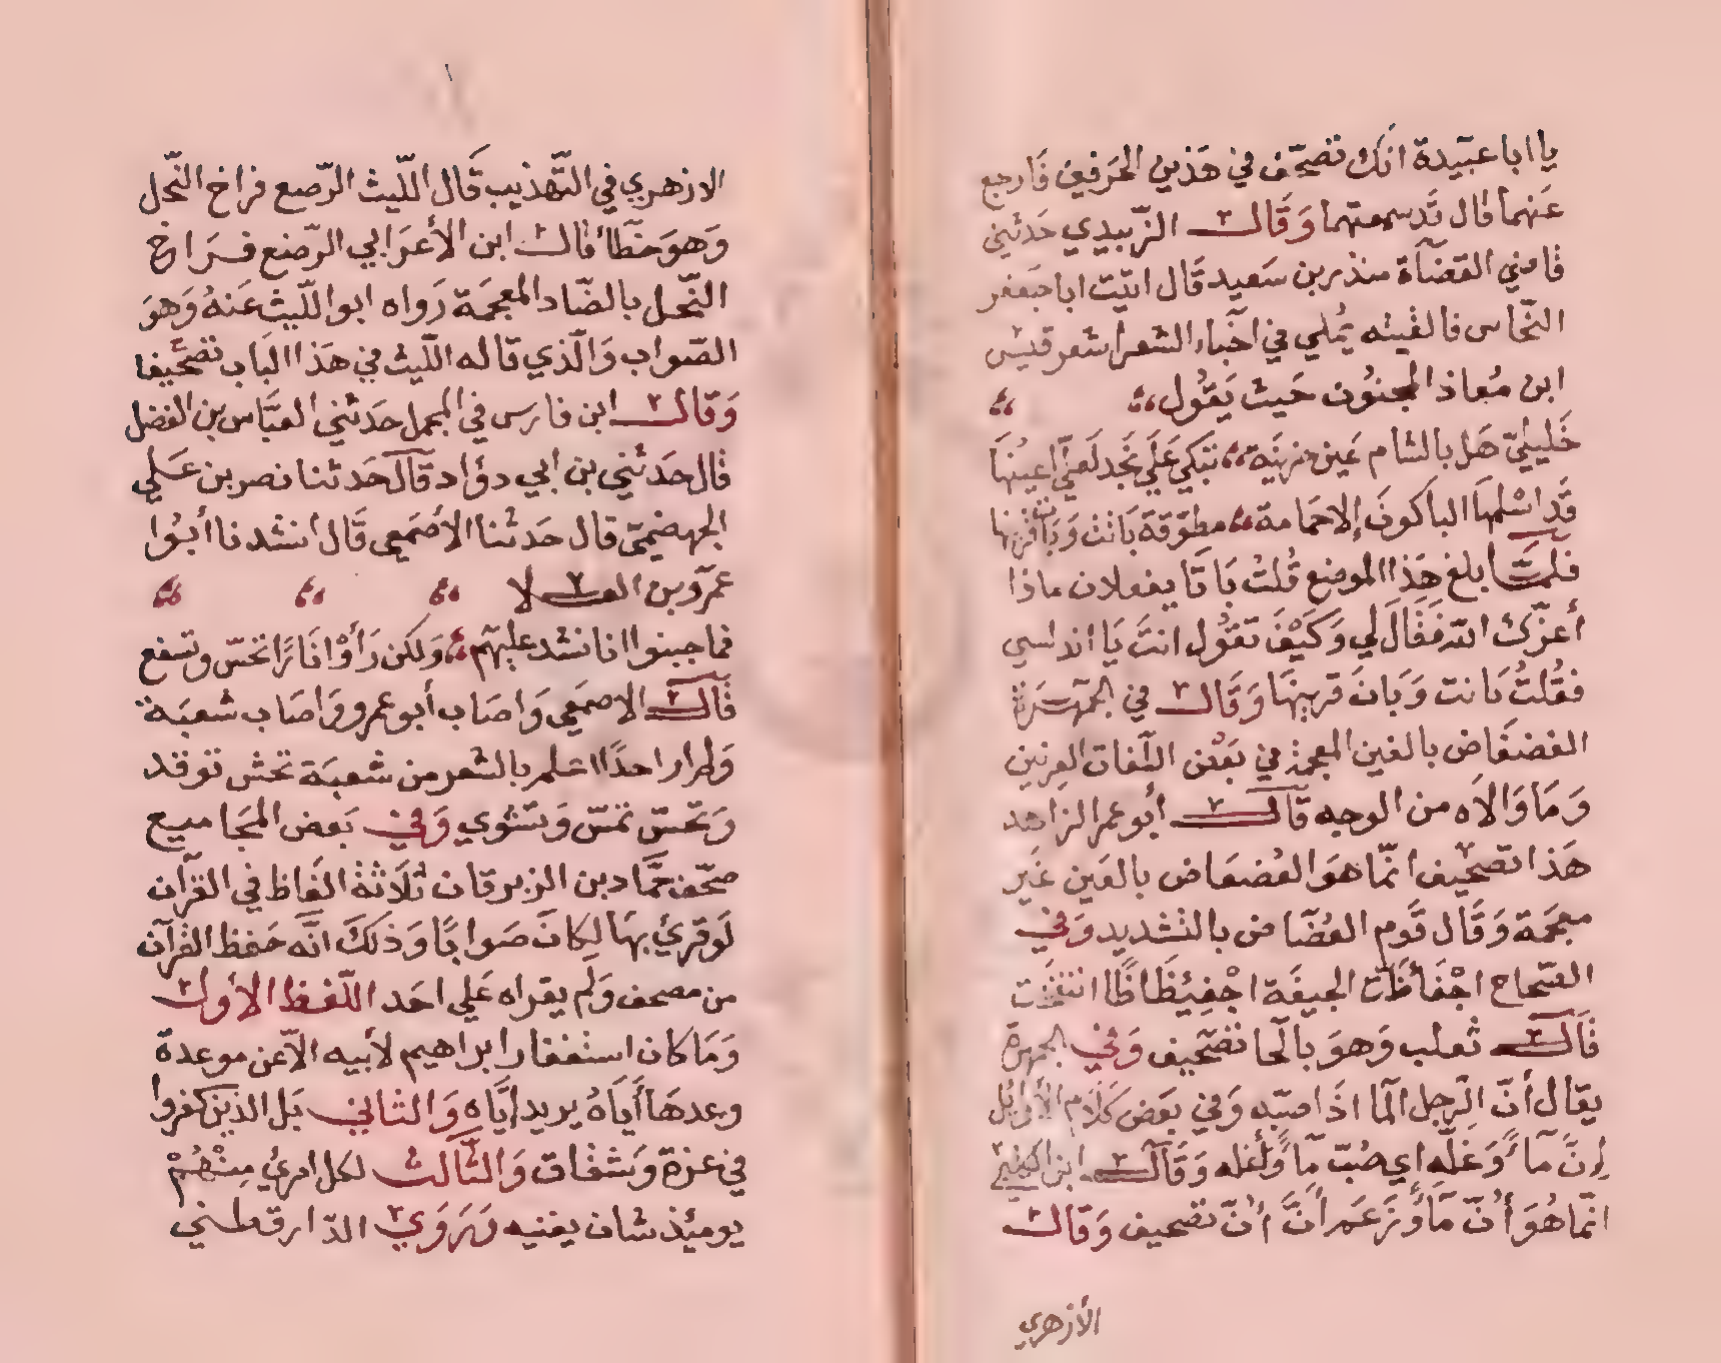 يا ابا عبيدة انك تصحّف في هَذين الحَرفين فَارجع
عَنهما قال قَد سمعتهما وَقَال الزّبيدي حَدثني
قاضي القضَآة منذر بن سَعيد قَال اتيت ابا جَعفر
النحّاس فالفيته يُملي في اخبَار الشعرا شعر قيس
ابن مُعاذ المجنُون حَيث يَقُول
خَليليّ هَل بالشام عَين حزينَة تبَكي عَلَي نجَد لَعَلّي اعينهَا
قَد اسْلمهَا الباَكونَ إلا حَمامة مطوّقَة بَاتت وَبَات قرينها
فلمَّا بلغ هَذا الموضع قُلتُ يَا بَاتا يفعلان ماذا
أعزّك الله فَقَالَ لي وَكَيْفَ تقَوُل انتَ يَا اندلسي
فقُلتُ بَانت وَبَانَ قرينهَا وَقَال في الجمهَرَة
الغضغَاض بالغين المعجمة في بَعْض اللّغات العِرنين
وَمَا وَالاَه من الوجه قَال أبُو عمر الزاهد
هَذا تصحيف انّما هوَ العُضعَاض بالعَين غَير
معجَمَة وَقَال قَوم العُضّاض بالتشديد وَفي
الصّحاح اجْفَأظّت الجيفَة اجْفِيْظَاظًا انتفخَت
قَال ثَعلب وَهوَ بالحا تصَحيف وَفي الجمهرة
يقَال أنّ الرّجل المآ اذَا صبّه وَفي بعَض كَلَام الأوائل
إنَّ مَآءً وَغَلّه اي صُبّ مَآءً وَأغله وَقَال ابن الكلبي
انّما هُوَ أُنّ مَآءً وَزَعَم أنَّ أُنّ تصَحيف وَقَال
الأزهري
الازهري في التّهذيب قَال اللّيث الرّصع فراخ النّحل
وَهوَ خطَأ قَال ابن الأعرَابي الرّضع فرَاخ
النّحل بالضّاد المعجمَة رَواه ابو اللّيث عَنهُ وَهوَ
الصّواب وَالّذي قاله اللّيث في هَذا البَاب تصَحيفا
وَقاَل ابن فارس في المجمل حَدثني العبّاس بن الفضل
قال حَدثني بن ابي دؤاد قَال حَدثنا نصر بن عَلي
الجهضميّ قال حَدثنا الأصَمعي قَال أنشدنا أبُوا
عمَرو بن العَلا
فما جبنوا انا نشد عليهَم وَلَكن رَأَوْا نَارًا تحَسّ وتسفع
قَال الاصمَعي وَاصَاب أبو عمرو وَاصَاب شعبَة
وَلم ار احدًا اعلم بالشعر من شعبَة تحش توقد
وَتحَسّ تمسّ وَتشوي وَفي بَعض المجَاميع
صحّف حمَّاد بن الزبرقان ثلَاثَةُ الفَاظ في القرآن
لَو قرئَ بهَا لكَانَ صَوابًا وَذلكَ انَّه حَفظ القرآن
من مصحف وَلم يقراه عَلي احَد اللّفظ الأول
وَمَا كان استغفار ابراهيم لأبيه الّا عن موعدة
وعدهَا أَبَاهُ يريد إيَّاه وَالثاني بَل الذين كفروا
في غرة وَشقاق وَالثّالث لكل امرئ مِنْهُمْ
يومئذ شان يعنيه وَرَوَي الدّارقطني